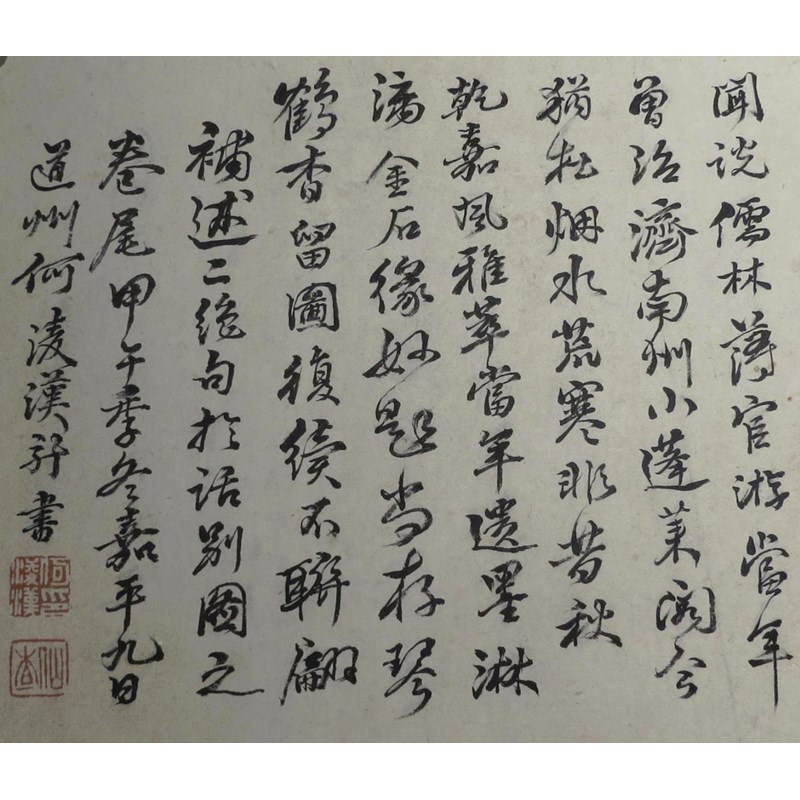 聞說儒林薄宦游當年
曾治濟南州小蓬萊閣今
猶在烟水荒寒非昔秋
乾嘉風雅萃當年遺墨淋
漓金石緣妙題尚存琴
鶴香留圖復續不聯翩
補述二絕句於話別圖之
卷尾甲午季冬嘉平九日
道州何凌漢并書
何凌漢印